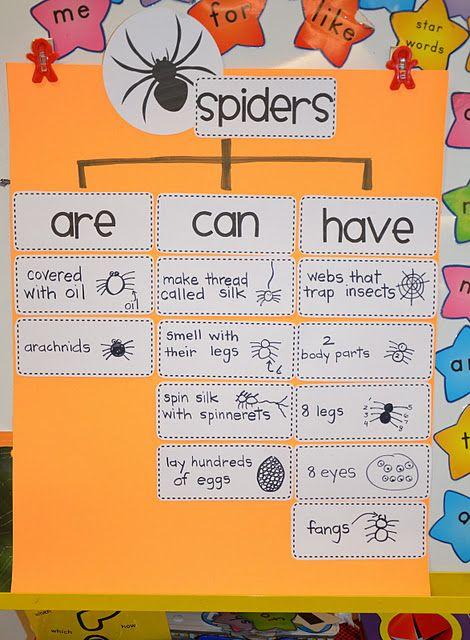 me
for
like
star
words
spiders
are
can
have
covered
with oil
oil
arachnids
make thread
called silk
smell with
their legs
spin silk
with spinnerets
lay hundreds
of eggs
webs that
trap insects
2
body parts
1
2
8 legs
1
2
3
4
5
6
7
8
8 eyes
fangs
which
how